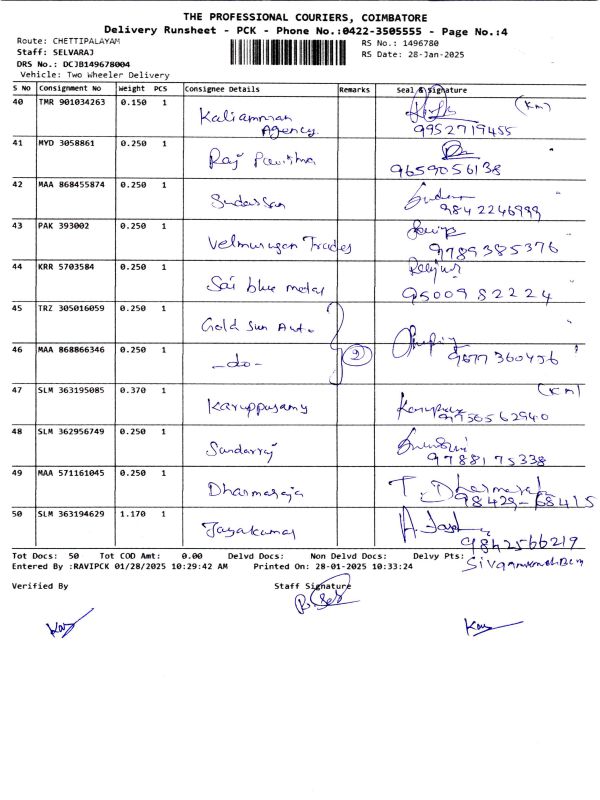 THE PROFESSIONAL COURIERS, COIMBATORE
Delivery Runsheet - PCK - Phone No.:0422-3505555 - Page No.:4
Route: CHETTIPALAYAM
RS No.: 1496780
Staff: SELVARAJ
RS Date: 28-Jan-2025
DRS No.: DCJB149678004
Vehicle: Two Wheeler Delivery
S No Consignment No Weight PCS Consignee Details Remarks Seal & Signature
40 TMR 901034263 0.150 1 Kaliamman Agency (Km)
9952719455
41 MYD 3058861 0.250 1 Raj
9659056138
42 MAA 868455874 0.250 1 Sudarsan
9842246999
43 PAK 393002 0.250 1 Velmurugan Trades
9789385376
44 KRR 5703584 0.250 1 Sai blue metal
9500982224
45 TRZ 305016059 0.250 1 Gold Sun Auto
46 MAA 868866346 0.250 1 -do- 2
9677360456
47 SLM 363195085 0.370 1 Karuppusamy (Km)
9756562940
48 SLM 362956749 0.250 1 Sundarraj
9788175338
49 MAA 571161045 0.250 1 Dharmaraja T. Dharmaraj
98429-68415
50 SLM 363194629 1.170 1 Jayakumar
9842566219
Tot Docs: 50 Tot COD Amt: 0.00 Delvd Docs: Non Delvd Docs: Delvy Pts:
Entered By :RAVIPCK 01/28/2025 10:29:42 AM Printed On: 28-01-2025 10:33:24
Verified By Staff Signature